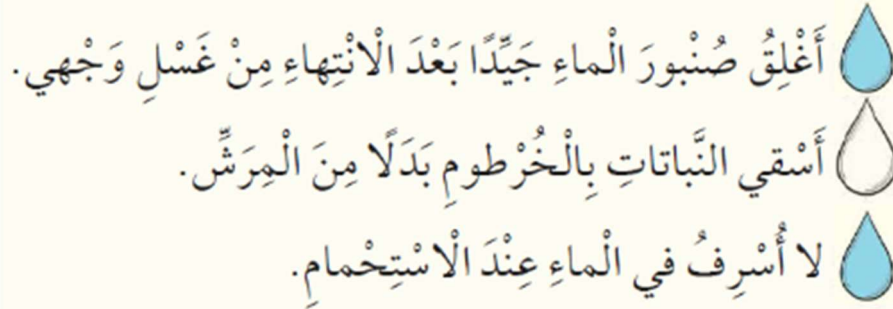 أَغْلِقُ صُنْبورَ الْماءِ جَيِّدًا بَعْدَ الْانْتِهاءِ مِنْ غَسْلِ وَجْهي.
أَسْقي النَّباتاتِ بِالْخُرْطومِ بَدَلًا مِنَ الْمِرَشِّ.
لا أُسْرِفُ في الْماءِ عِنْدَ الْاسْتِحْمامِ.